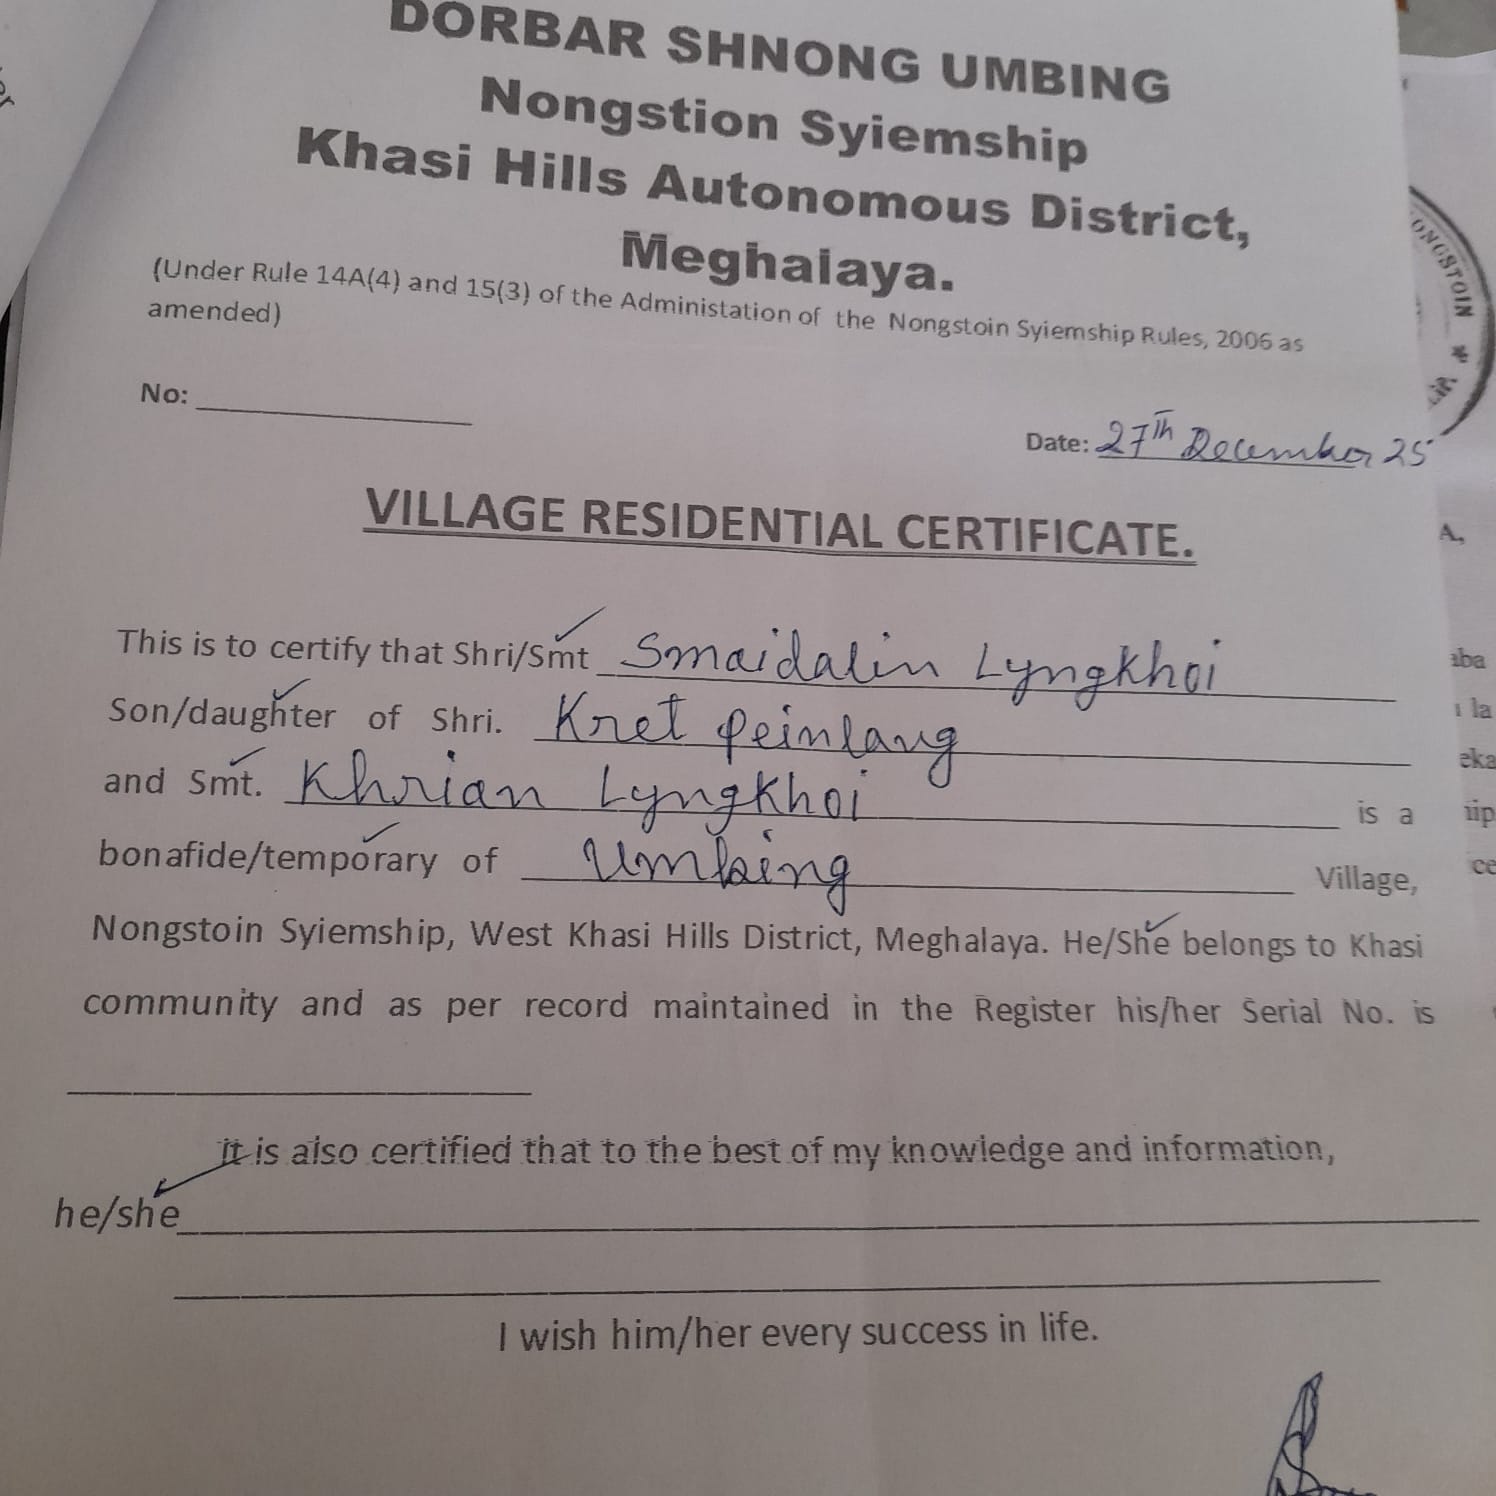 DORBAR SHNONG UMBING
Nongstion Syiemship
Khasi Hills Autonomous District,
Meghalaya.
(Under Rule 14A(4) and 15(3) of the Administation of the Nongstoin Syiemship Rules, 2006 as
amended)
No:
Date: 27th December 25
VILLAGE RESIDENTIAL CERTIFICATE.
This is to certify that Shri/Smt Smaidalin Lyngkhoi
Son/daughter of Shri. Kret Peinlang
and Smt. Khrian Lyngkhoi is a
bonafide/temporary of Umbing Village,
Nongstoin Syiemship, West Khasi Hills District, Meghalaya. He/She belongs to Khasi
community and as per record maintained in the Register his/her Serial No. is
It is also certified that to the best of my knowledge and information,
he/she
I wish him/her every success in life.
ONGSTOIN
A,
aba
la
eka
ce